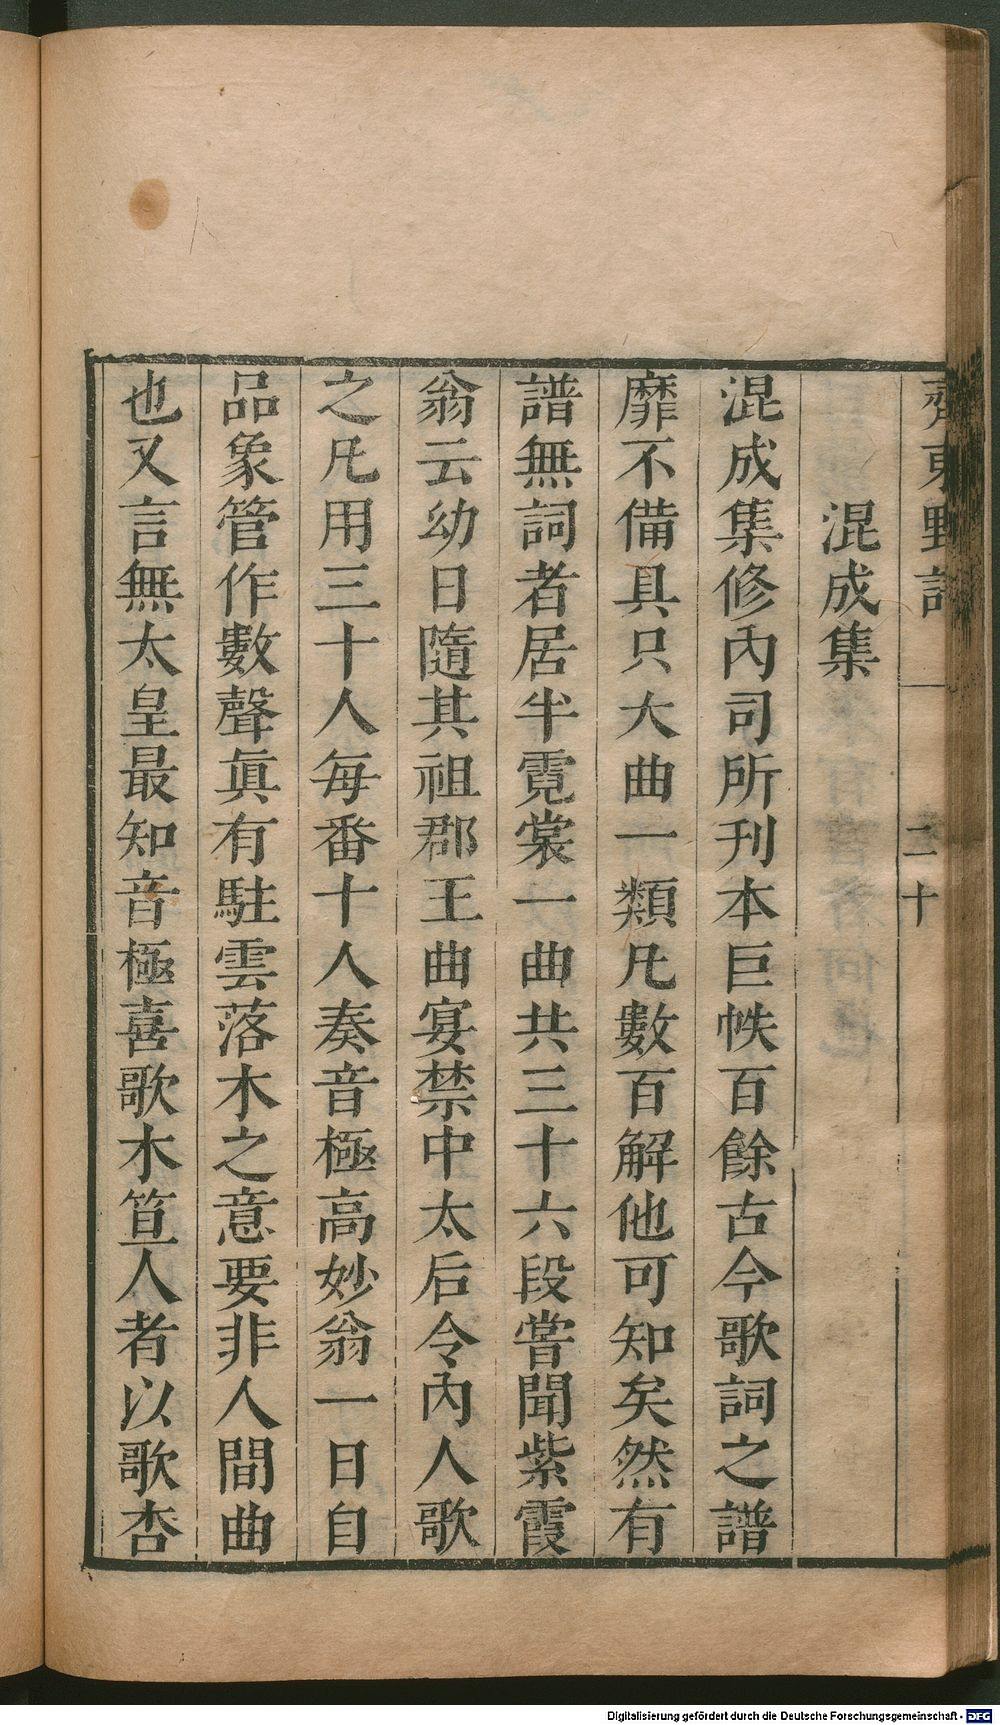 齊東野語
二十
混成集
混成集修內司所刊本巨帙百餘古今歌詞之譜
靡不備具只大曲一類凡數百解他可知矣然有
譜無詞者居半霓裳一曲共三十六段嘗聞紫霞
翁云幼日隨其祖郡王曲宴禁中太后令內人歌
之凡用三十人每番十人奏音極高妙翁一日自
品象管作數聲眞有駐雲落木之意要非人間曲
也又言無太皇最知音極喜歌木笪人者以歌杏
Digitalisierung gefördert durch die Deutsche Forschungsgemeinschaft - DFG